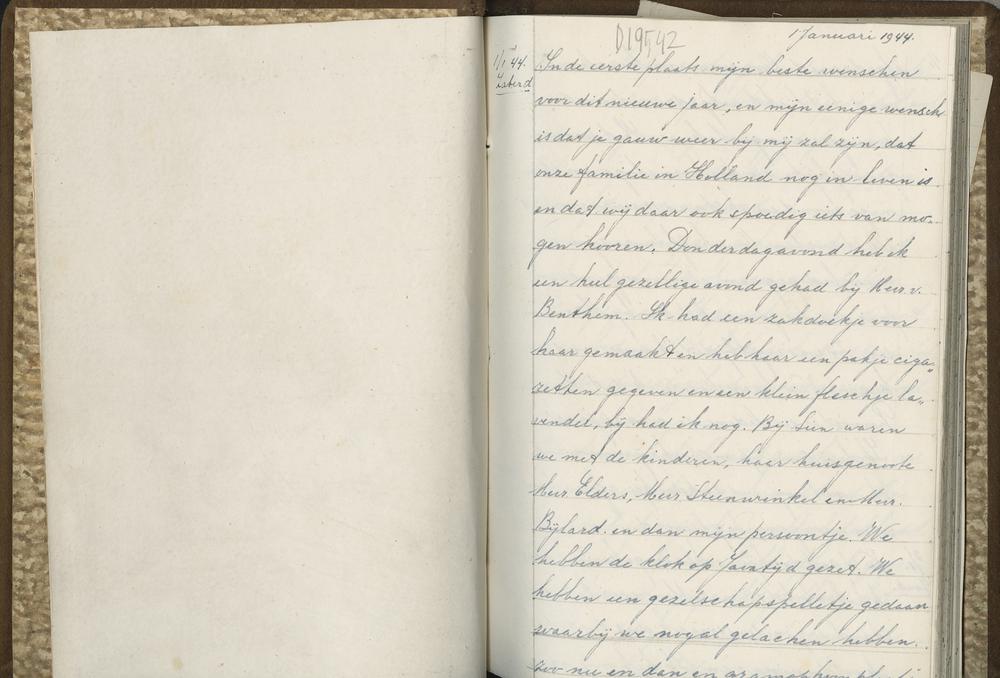 D19542
1 Januari 1944.
1/1 '44.
Zaterd.
In de eerste plaats mijn beste wenschen
voor dit nieuwe jaar, en mijn eenige wensch
is dat je gauw weer bij mij zal zijn, dat
onze familie in Holland nog in leven is
en dat wij daar ook spoedig iets van mo-
gen hooren. Donderdagavond heb ik
een heel gezellige avond gehad bij Mevr. v.
Benthem. Ik had een zakdoekje voor
haar gemaakt en heb haar een pakje ciga"
retten gegeven en een klein fleschje la"
vendel, had ik nog. Bij waren
we met de kinderen, haar huisgenoote
Mevr. Elders, Mevr. Steenwinkel en Mevr.
Bijlard. en dan mijn persoontje. We
hebben de klok op Javatijd gezet. We
hebben een gezelschapspelletje gedaan
waarbij we nogal gelachen hebben.
zoo nu en dan en